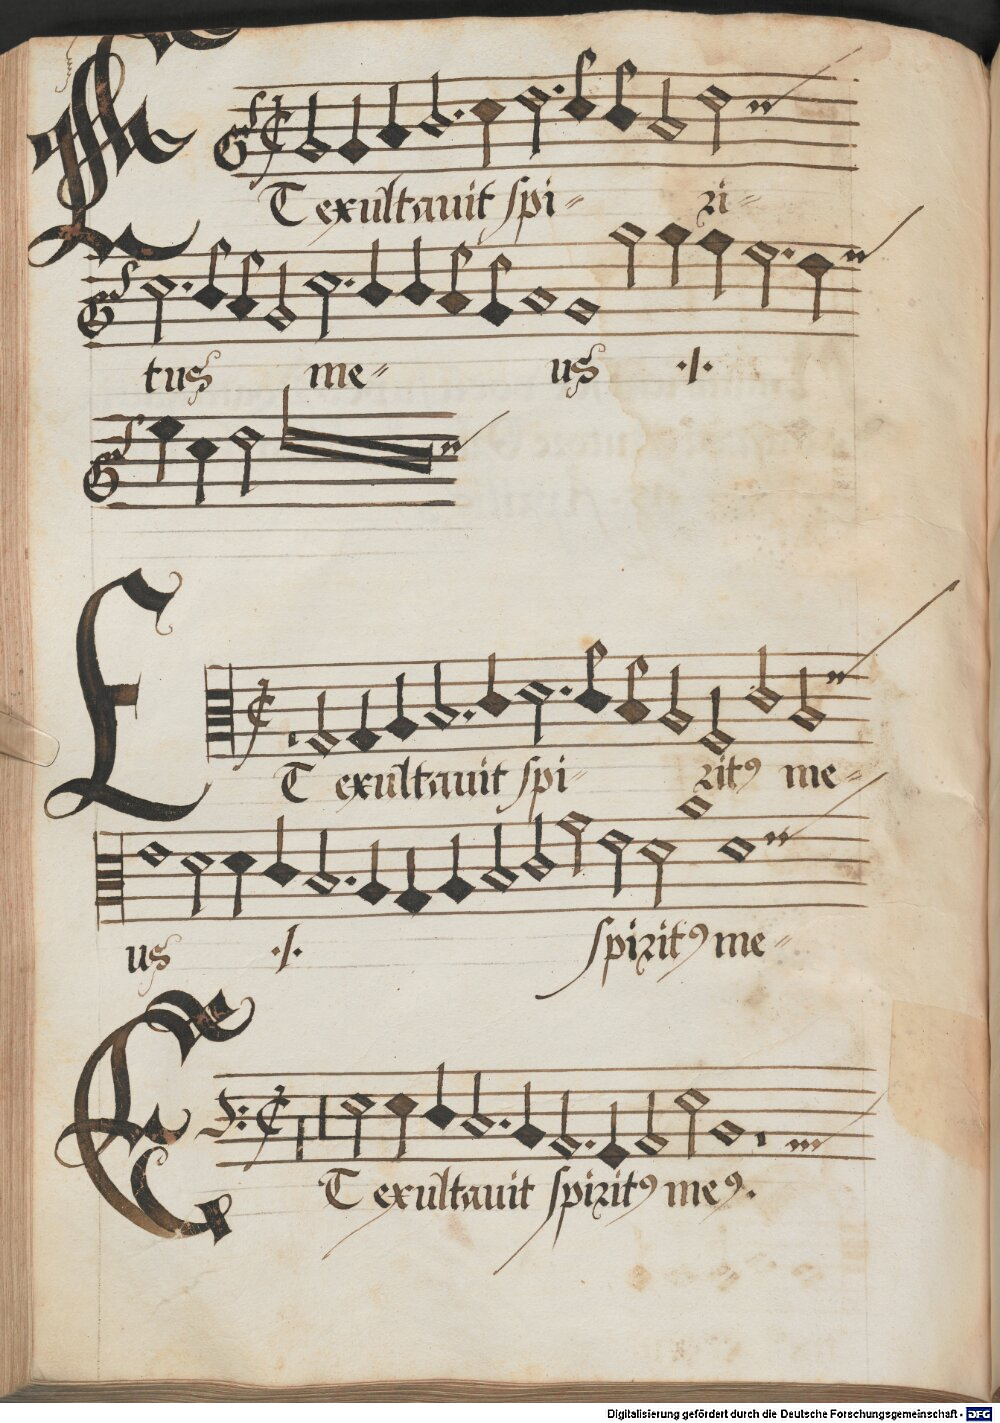 ET exultauit spi- ri-
tus me- us ·/·
ET exultauit spi- ritꝰ me-
us ·/· spiritꝰ me-
ET exultauit spiritꝰ meꝰ.
Digitalisierung gefördert durch die Deutsche Forschungsgemeinschaft - DFG